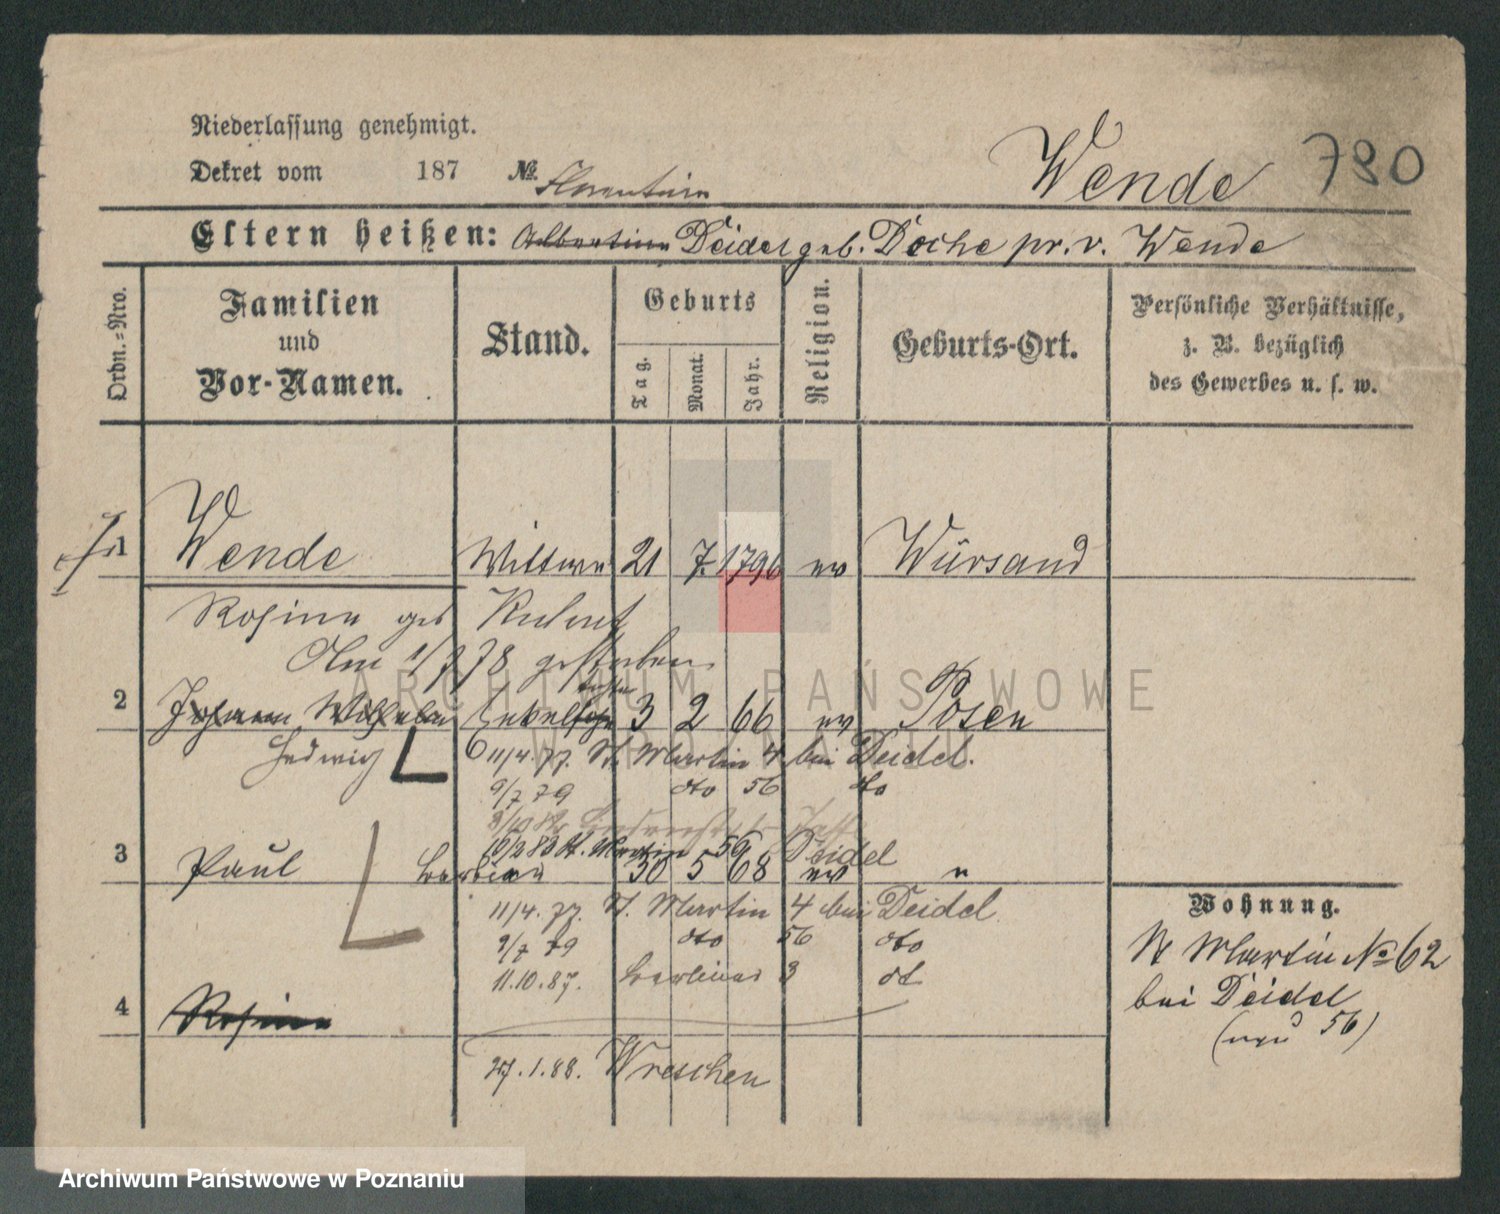 Niederlassung genehmigt.
Dekret vom 187 № Wende 780
Florentine
Eltern heißen: Albertine Deidel geb. Doche pr. v. Wende
Ordn.=Nro.
Familien und Vor-Namen.
Stand.
Geburts
Tag. Monat. Jahr.
Religion.
Geburts-Ort.
Persönliche Verhältnisse, z. B. bezüglich des Gewerbes u. s. w.
1 Wende Wittwe 21 7. 1796 ev Würsand
Rosine geb
Am 1/7 78 gestorben
tochter
2 Johann Wilhelm Enkelsohn 3 2 66 ev Posen
Hedwig 11/4. 77. St. Martin 4 bei Deidel.
9/7 79 dto 56 dto
10/2 83 St. Martin 56 Deidel
3 Paul 30 5 68 ev "
11/4. 77. St. Martin 4 bei Deidel
9/7 79 dto 56 dto
11.10.87. Berliner 3 dt
4 Rosine
27.1.88. Wreschen
Wohnung.
St Martin No 62
bei Deidel
(neu 56)
ARCHIWUM PAŃSTWOWE
W POZNANIU
Archiwum Państwowe w Poznaniu